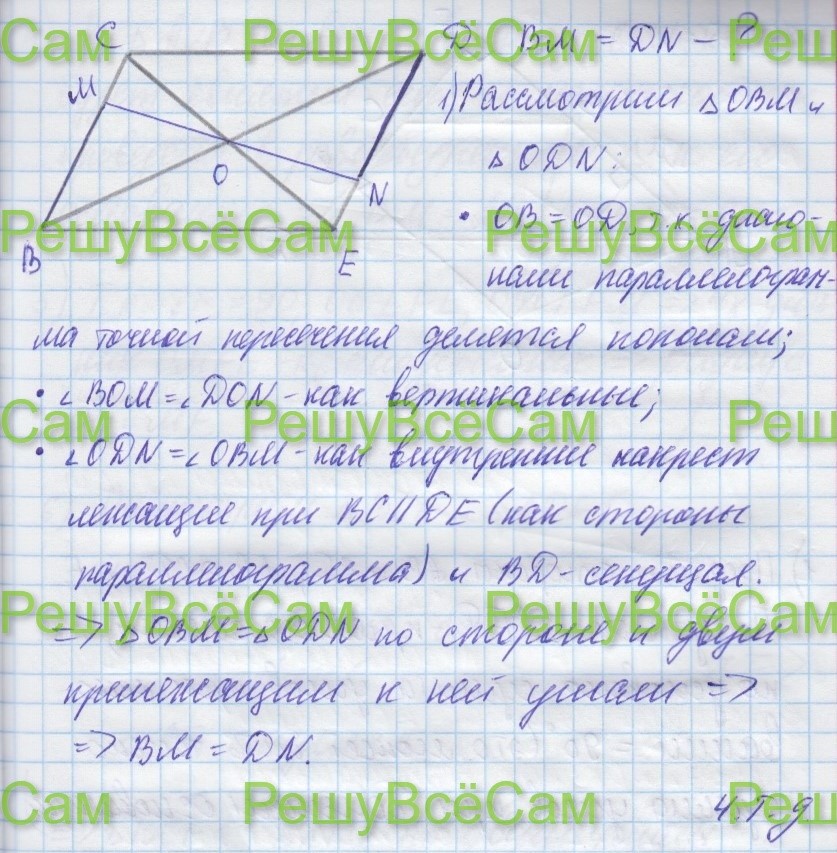 C D BM = DN - ?
M 1) Рассмотрим △OBM и
△ODN:
O N • OB = OD, т.к. диаго-
B E нали параллелограм-
ма точкой пересечения делятся пополам;
• ∠BOM = ∠DON - как вертикальные;
• ∠ODN = ∠OBM - как внутренние накрест
лежащие при BC || DE (как стороны
параллелограмма) и BD - секущая.
=> △OBM = △ODN по стороне и двум
прилежащим к ней углам =>
=> BM = DN.
ч.т.д
Сам РешуВсёСам Решу
РешуВсёСам РешуВсёСам
Сам РешуВсёСам Реш
РешуВсёСам РешуВсёСам
Сам РешуВсёСам Реш